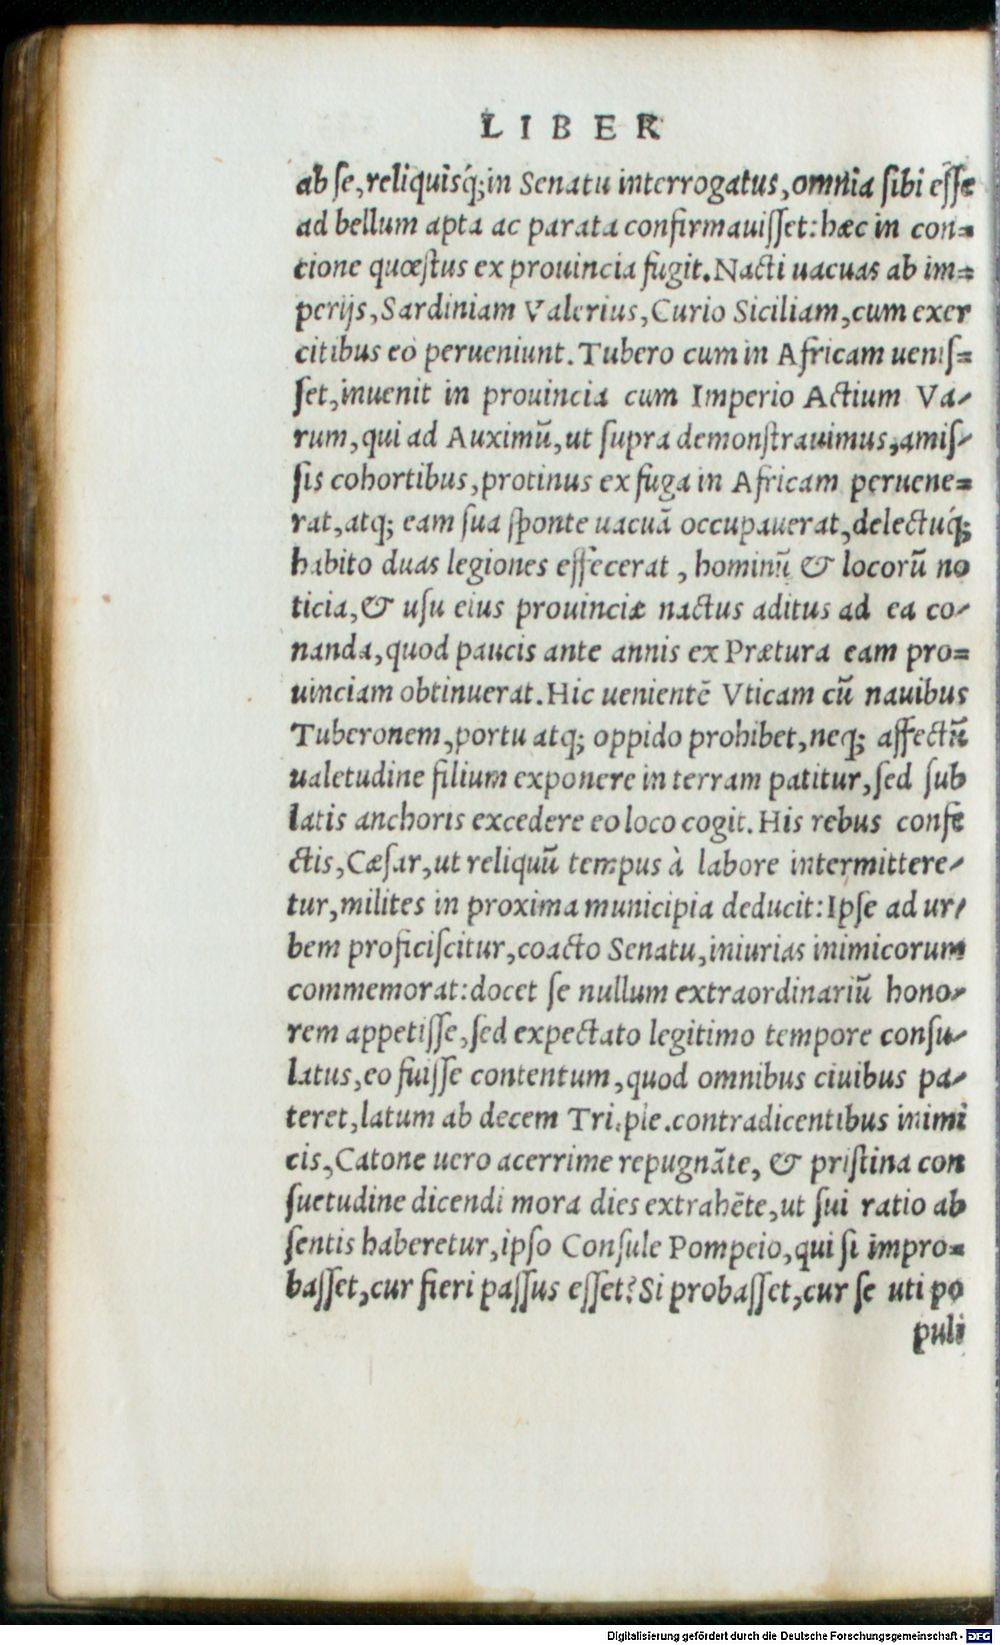 LIBER
ab se, reliquisq́; in Senatu interrogatus, omnia sibi esse
ad bellum apta ac parata confirmauisset: hæc in con=
cione quæstus ex prouincia fugit. Nacti uacuas ab im=
perijs, Sardiniam Valerius, Curio Siciliam, cum exer
citibus eò perueniunt. Tubero cum in Africam uenis=
set, inuenit in prouincia cum Imperio Actium Va-
rum, qui ad Auximũ, ut supra demonstrauimus, amis-
sis cohortibus, protinus ex fuga in Africam peruene=
rat, atq; eam sua sponte uacuã occupauerat, delectuq́;
habito duas legiones effecerat, hominũ & locorũ no
ticia, & usu eius prouinciæ nactus aditus ad ea co-
nanda, quod paucis ante annis ex Prætura eam pro=
uinciam obtinuerat. Hic uenientẽ Vticam cũ nauibus
Tuberonem, portu atq; oppido prohibet, neq; affectũ
ualetudine filium exponere in terram patitur, sed sub
latis anchoris excedere eo loco cogit. His rebus confe
ctis, Cæsar, ut reliquũ tempus à labore intermittere-
tur, milites in proxima municipia deducit: Ipse ad ur-
bem proficiscitur, coacto Senatu, iniurias inimicorum
commemorat: docet se nullum extraordinariũ hono-
rem appetisse, sed expectato legitimo tempore consu-
latus, eo fuisse contentum, quod omnibus ciuibus pa-
teret, latum ab decem Tri. ple. contradicentibus inimi
cis, Catone uero acerrime repugnãte, & pristina con
suetudine dicendi mora dies extrahẽte, ut sui ratio ab
sentis haberetur, ipso Consule Pompeio, qui si impro=
basset, cur fieri passus esset? Si probasset, cur se uti po
puli
Digitalisierung gefördert durch die Deutsche Forschungsgemeinschaft - DFG